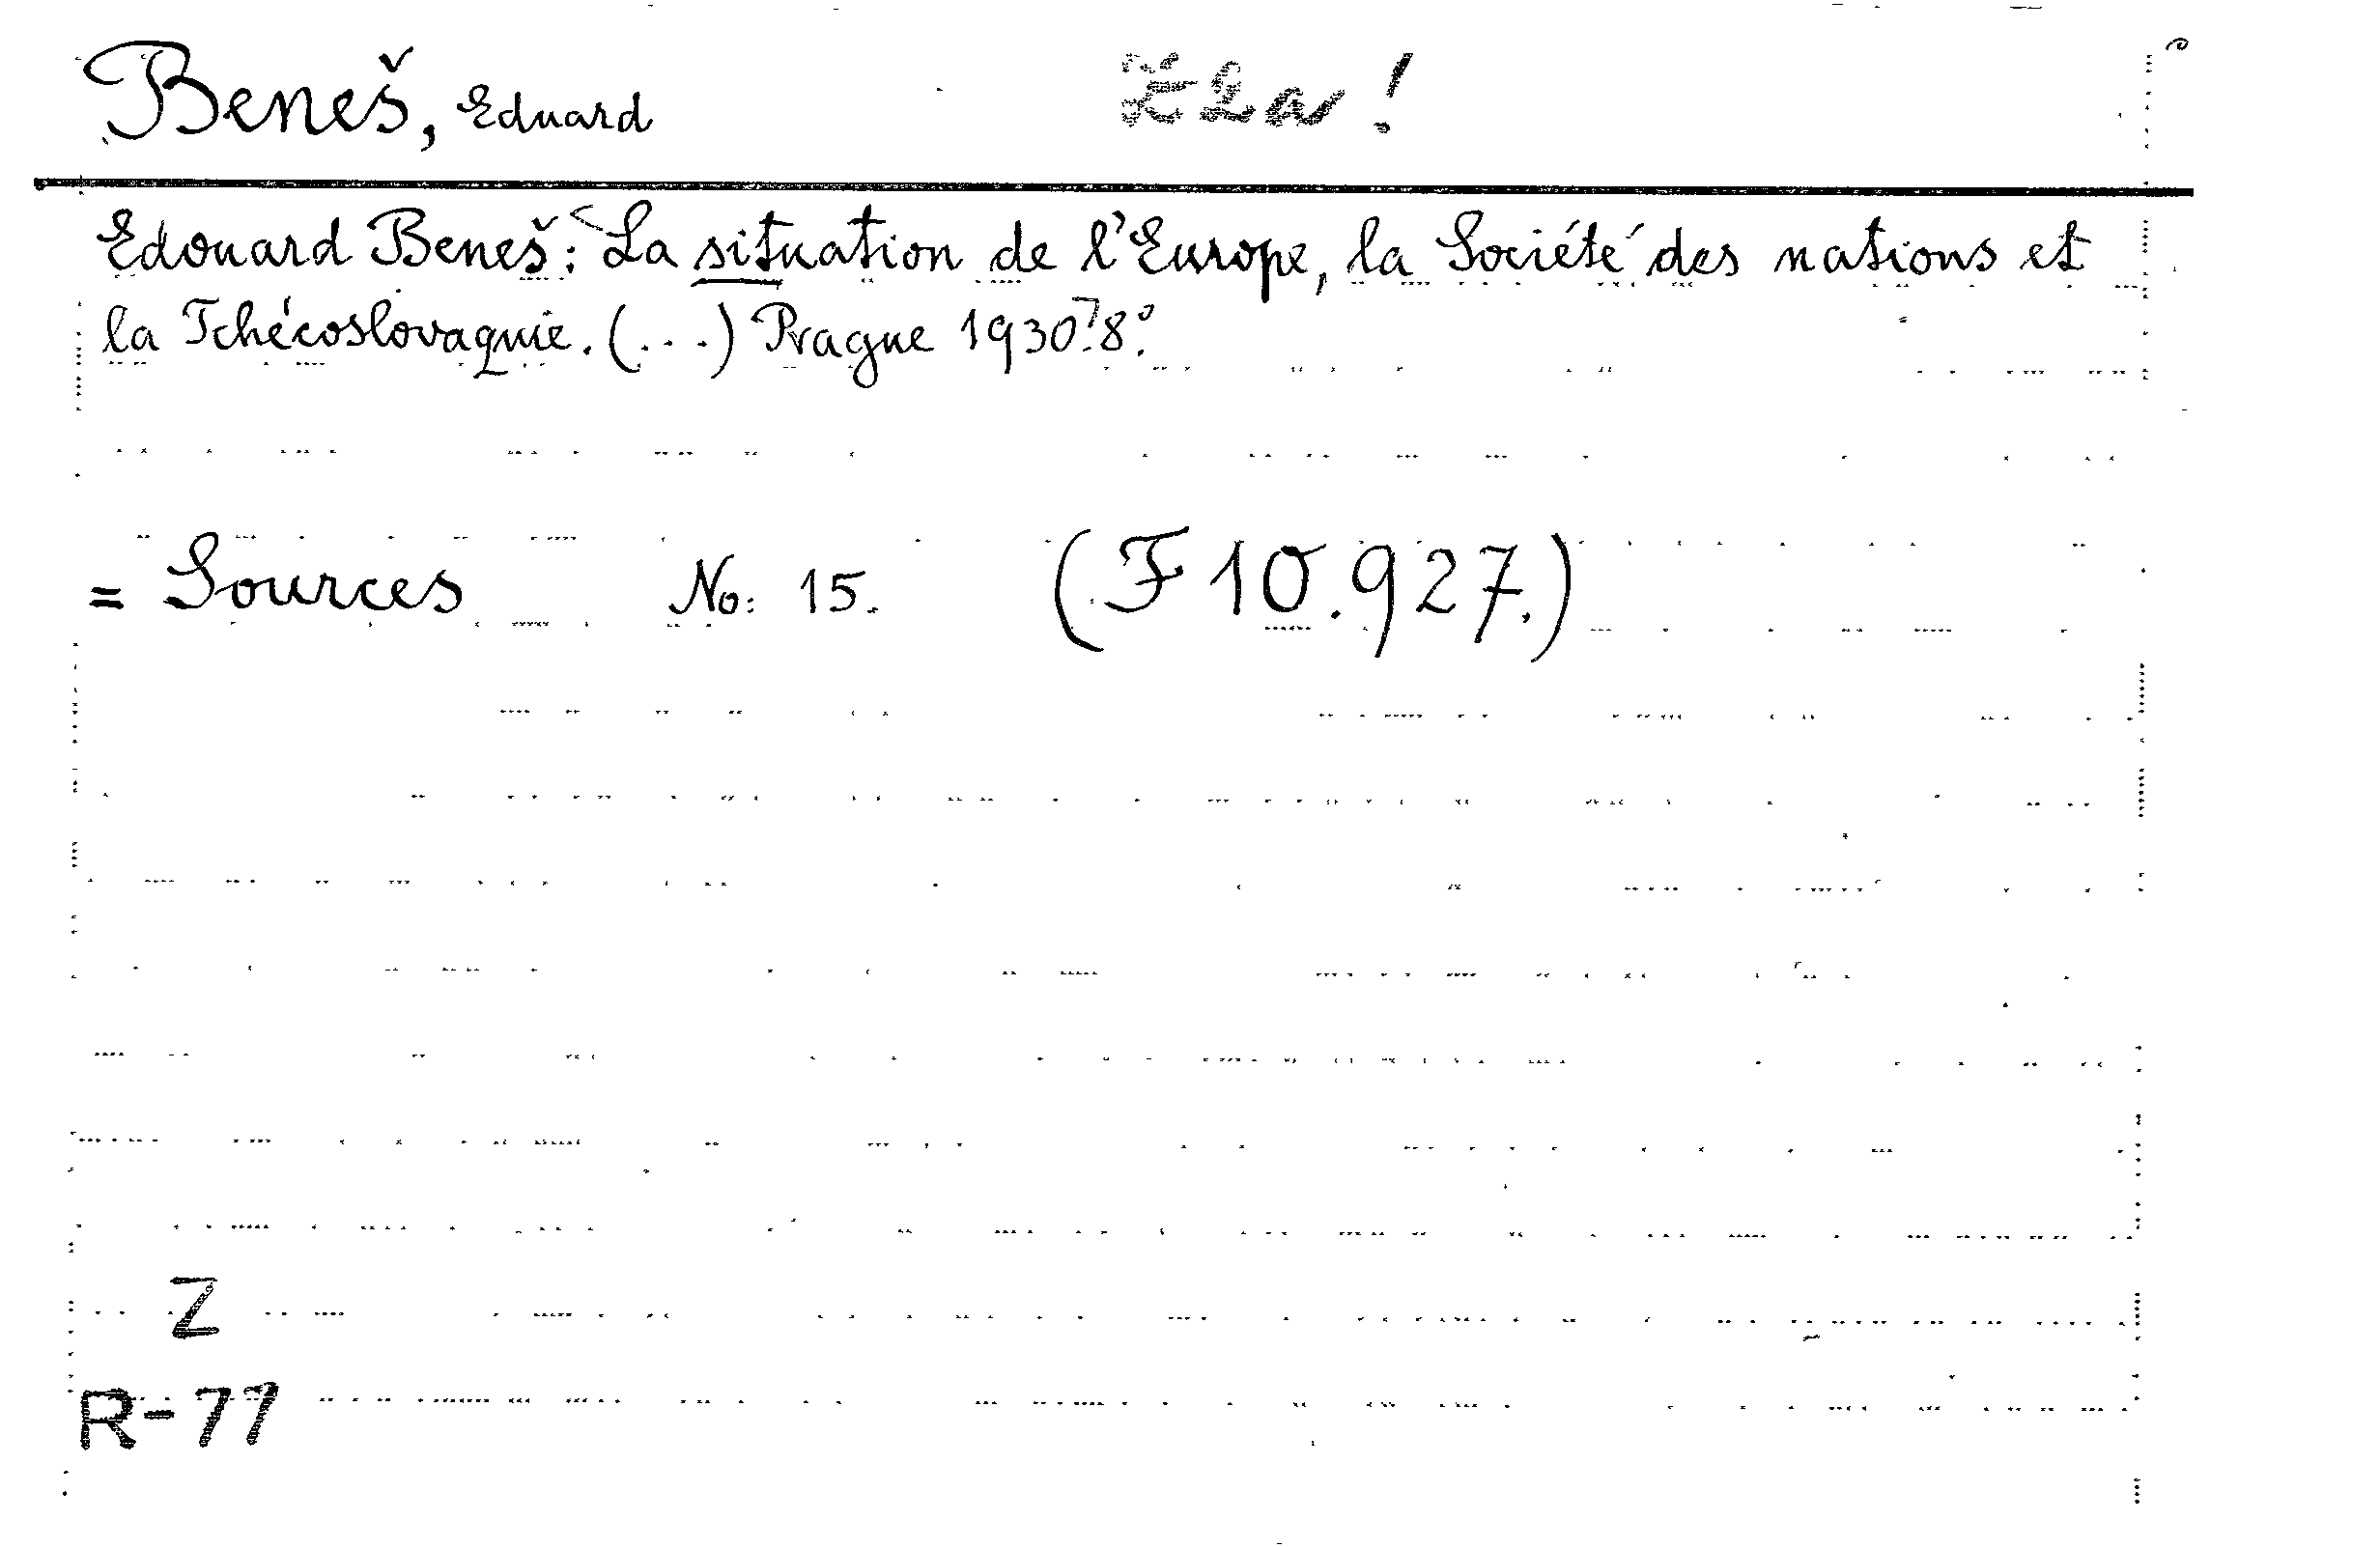 Beneš, Eduard
Edouard Beneš: La situation de l'Europe, la Société des nations et
la Tchécoslovaquie. (...) Prague 1930. 8°.
= Sources No: 15. (F 10.927.)
Z
R-77